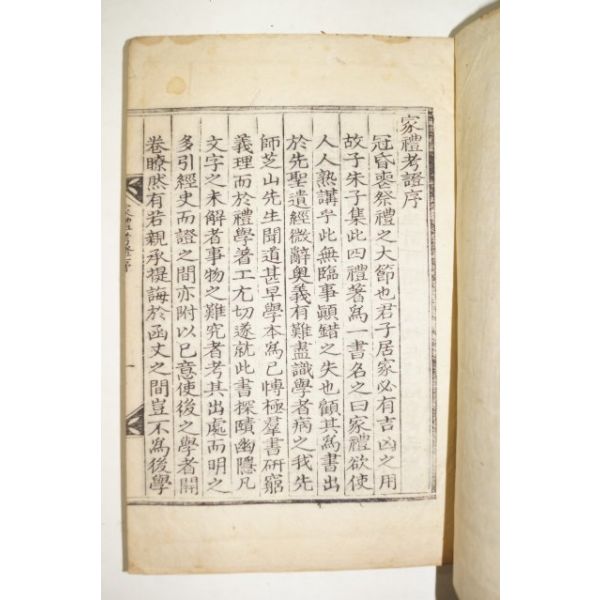 家禮考證序
冠昏喪祭禮之大節也君子居家必有吉凶之用
故子朱子集此四禮著爲一書名之曰家禮欲使
人人熟講乎此無臨事顚錯之失也顧其爲書出
於先聖遺經微辭奧義有難盡識學者病之我先
師芝山先生聞道甚早學本爲己愽極羣書硏窮
義理而於禮學著工尤切遂就此書探賾幽隱凡
文字之未解者事物之難究者考其出處而明之
多引經史而證之間亦附以己意使後之學者開
卷瞭然有若親承提誨於函丈之間豈不爲後學
家禮考證序
一